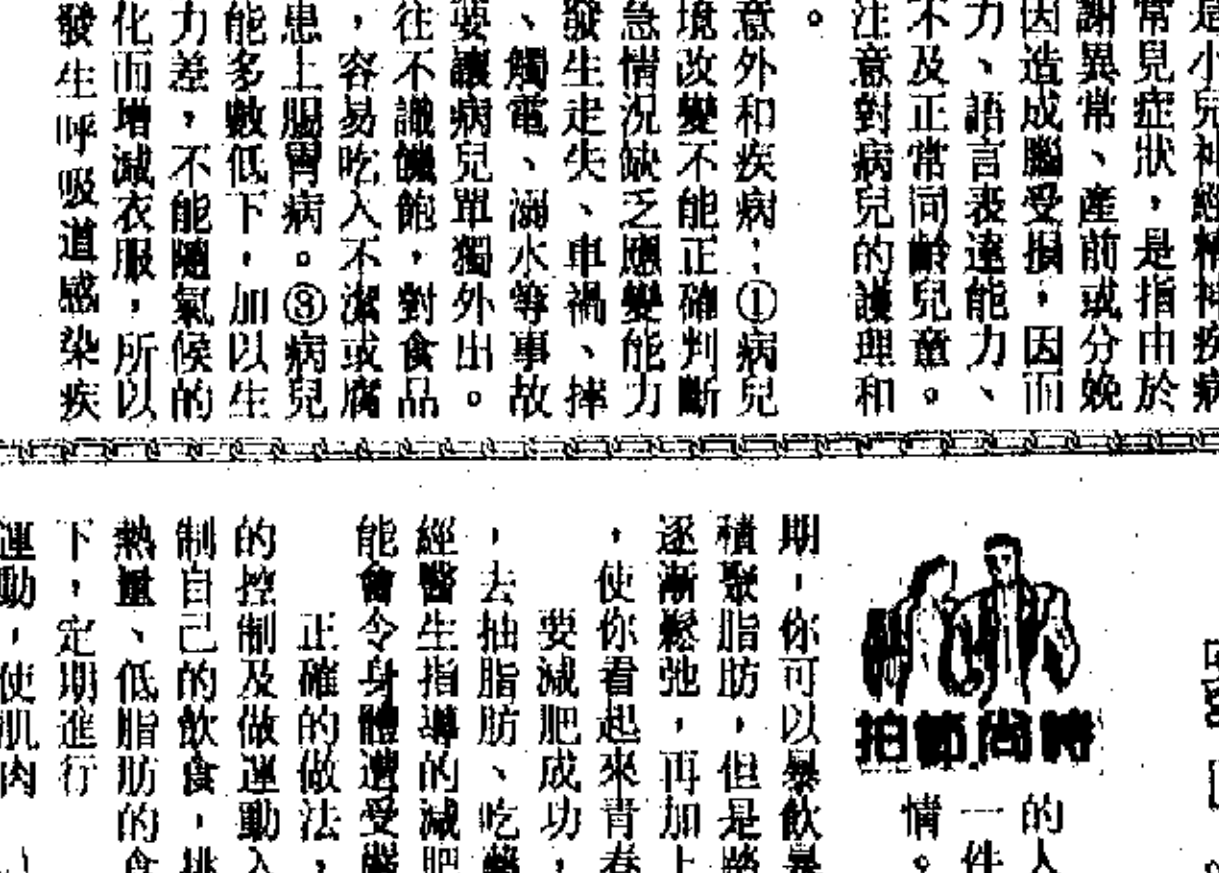 是小兒神經精神疾病
常見症狀，是指由於
謝異常、產前或分娩
因造成腦受損，因而
力、語言表達能力、
不及正常同齡兒童。
注意對病兒的護理和
。
意外和疾病：①病兒
境改變不能正確判斷
急情況缺乏應變能力
發生走失、車禍、摔
、觸電、溺水等事故
要讓病兒單獨外出。
往不識饑飽，對食品
，容易吃入不潔或腐
患上腸胃病。③病兒
能多數低下，加以生
力差，不能隨氣候的
化而增減衣服，所以
發生呼吸道感染疾
時尚節拍
的人
一件
情。
期，你可以暴飲暴
積聚脂肪，但是踏
逐漸鬆弛，再加上
，使你看起來青春
要減肥成功，
，去抽脂肪、吃藥
經醫生指導的減肥
能會令身體遭受嚴
正確的做法，
的控制及做運動入
制自己的飲食，挑
熱量、低脂肪的食
下，定期進行
運動，使肌肉